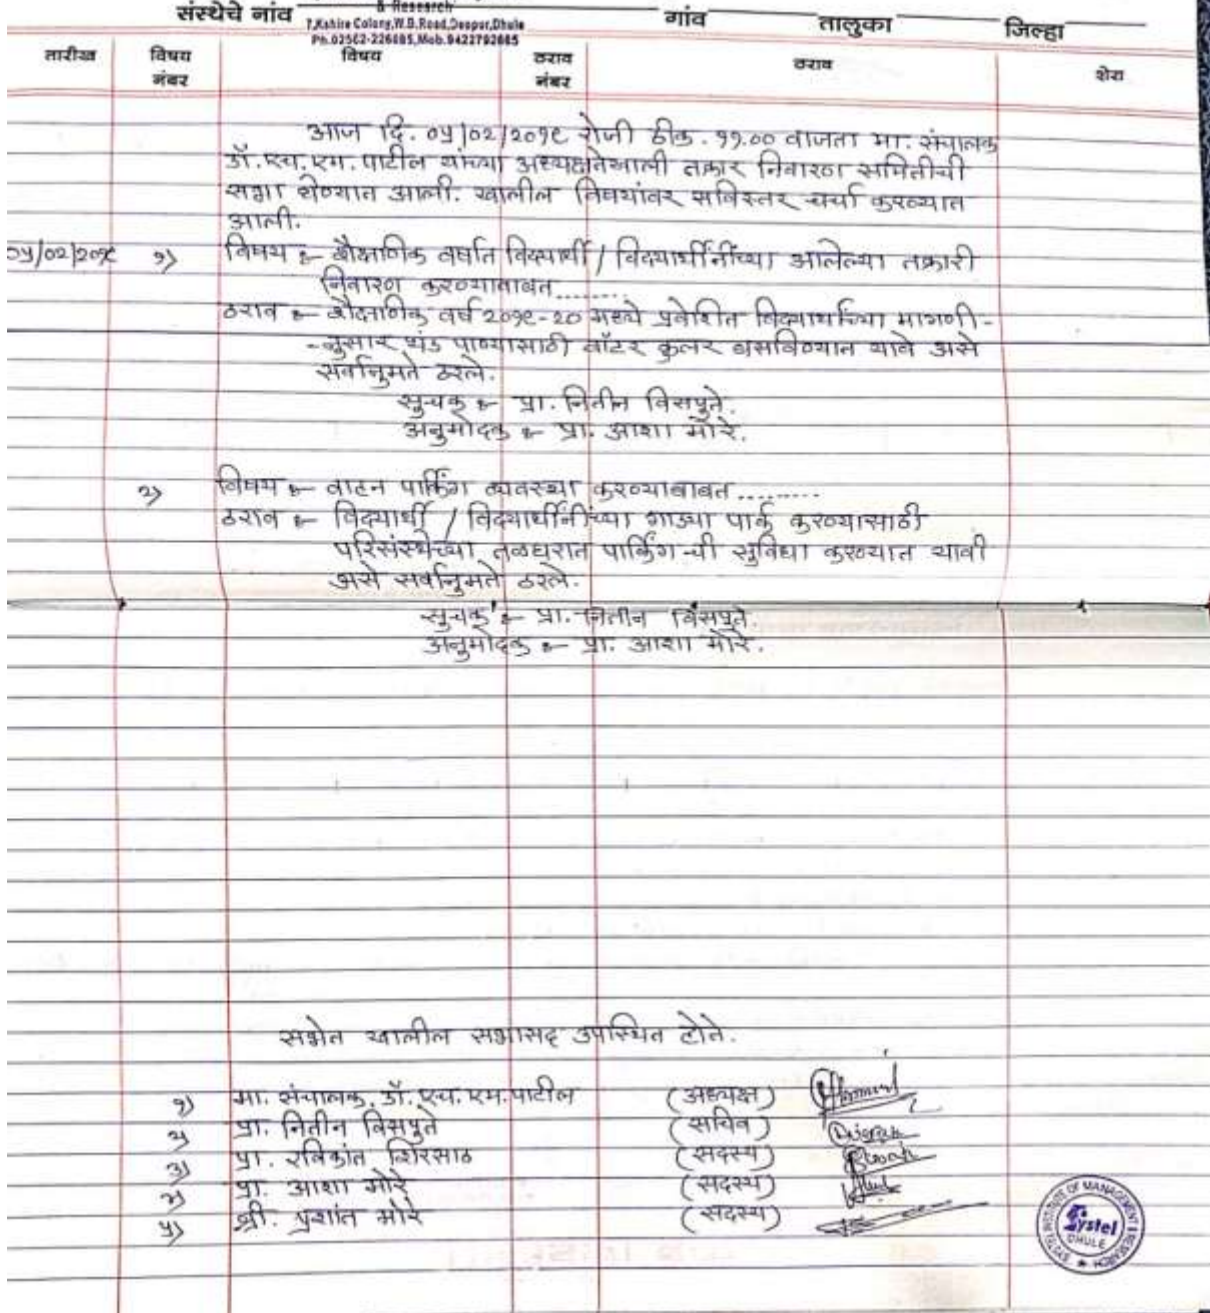 & Research
संस्थेचे नांव गांव तालुका जिल्हा
7,Kahire Colony,W.B.Road,Deopur,Dhule
Ph.02562-226885,Mob.9422792885
तारीख विषय नंबर विषय ठराव नंबर ठराव शेरा
आज दि. ०५/०२/२०१९ रोजी ठीक. ११.०० वाजता मा. संचालक
डॉ. एच. एम. पाटील यांच्या अध्यक्षतेखाली तक्रार निवारण समितीची
सभा घेण्यात आली. खालील विषयांवर सविस्तर चर्चा करण्यात
आली.
०५/०२/२०१९ १) विषय :- शैक्षणिक वर्षात विद्यार्थी / विद्यार्थीनींच्या आलेल्या तक्रारी
निवारण करण्याबाबत........
ठराव :- शैक्षणिक वर्ष २०१९-२० मध्ये प्रवेशित विद्यार्थ्यांच्या मागणी-
-नुसार थंड पाण्यासाठी वॉटर कुलर बसविण्यात यावे असे
सर्वानुमते ठरले.
सुचक :- प्रा. नितीन विसपुते.
अनुमोदक :- प्रा. आशा मोरे.
२) विषय :- वाहन पार्किंग व्यवस्था करण्याबाबत.........
ठराव :- विद्यार्थी / विद्यार्थीनींच्या गाड्या पार्क करण्यासाठी
परिसंस्थेच्या तळघरात पार्किंग-ची सुविधा करण्यात यावी
असे सर्वानुमते ठरले.
सुचक :- प्रा. नितीन विसपुते.
अनुमोदक :- प्रा. आशा मोरे.
सभेत खालील सभासद उपस्थित होते.
१) मा. संचालक. डॉ. एच. एम. पाटील (अध्यक्ष)
२) प्रा. नितीन विसपुते (सचिव)
३) प्रा. रविकांत शिरसाठ (सदस्य)
४) प्रा. आशा मोरे (सदस्य)
५) श्री. प्रशांत मोरे (सदस्य)
SYSTEL INSTITUTE OF MANAGEMENT & RESEARCH
Systel
DHULE